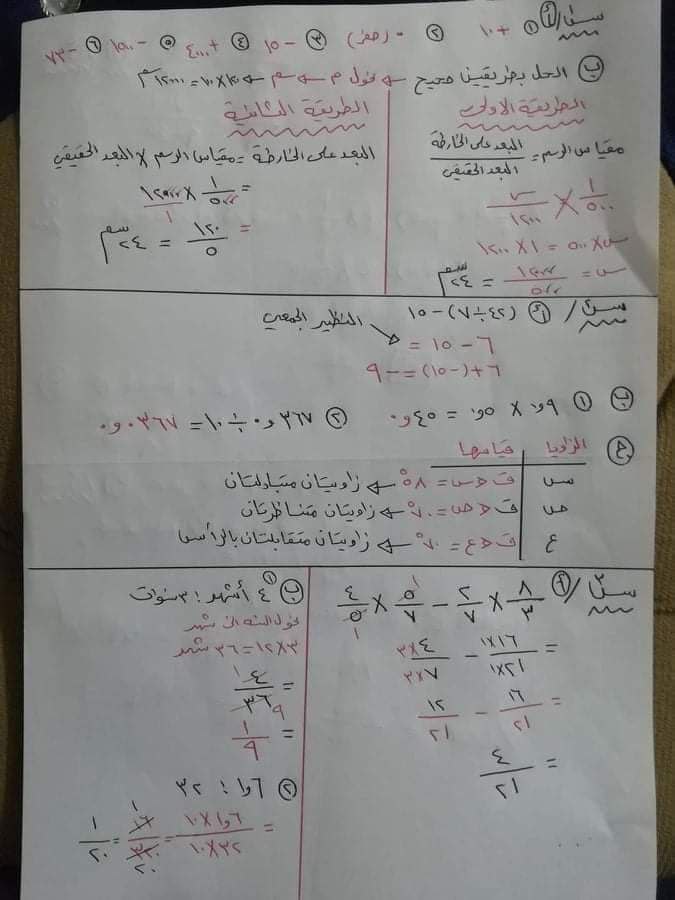 س١/ أ) ① +١٠ ② ٠ (صفر) ③ -١٥ ④ +٤٠٠٠ ⑤ -١٥٠٠ ⑥ -٧٣
ب) الحل بطريقتين صحيح ← نحول م ← سم ← ١٢٠ × ١٠٠ = ١٢٠٠٠ سم
الطريقة الأولى
مقياس الرسم = البعد على الخارطة / البعد الحقيقي
١/٥٠٠ × س/١٢٠٠٠
س × ٥٠٠ = ١ × ١٢٠٠٠
س = ١٢٠٠٠/٥٠٠ = ٢٤ سم
الطريقة الثانية
البعد على الخارطة = مقياس الرسم × البعد الحقيقي
= ١/٥٠٠ × ١٢٠٠٠/١
= ١٢٠/٥ = ٢٤ سم
أ) (٤٢ ÷ ٧) - ١٥
النظير الجمعي
= ٦ - ١٥
٦ + (-١٥) = -٩
ب) ① ٩و٠ × ٥و٠ = ٤٥و٠ ② ٣٦٧و٠ ÷ ١٠ = ٠٣٦٧و٠
ج) الزوايا | قياسها
س | ق > س = ٨٥° ← زاويتان متبادلتان
ص | ق > ص = ٧٠° ← زاويتان متناظرتان
ع | ق > ع = ٧٠° ← زاويتان متقابلتان بالرأس
أ) ٨/٣ × ٢/٧ - ٥/٧ × ٤/٥
= ١٦×١/٢١×١ - ٤×٣/٧×٣
= ١٦/٢١ - ١٢/٢١
= ٤/٢١
ب) ① ٤ أشهر : ٣ سنوات
نحول السنة الى شهر
٣ × ١٢ = ٣٦ شهر
= ٤/٣٦
= ١/٩
② ٦و١ : ٣٢
= ٦و١ × ١٠/٣٢ × ١٠ = ١٦/٣٢٠ = ١/٢٠